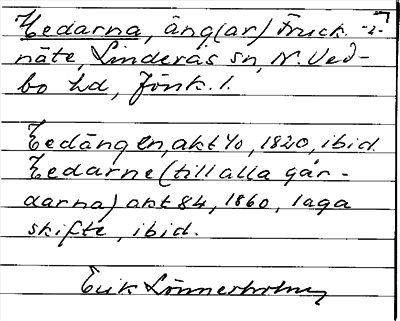 Hedarna, äng(ar) Fruck- -2-
näte, Linderås sn, N. Ved-
bo hd, Jönk. l.
Hedängen, akt 40, 1820, ibid.
Hedarne (till alla går-
darna) akt 84, 1860, laga
skifte, ibid.
Erik Lönnerholm